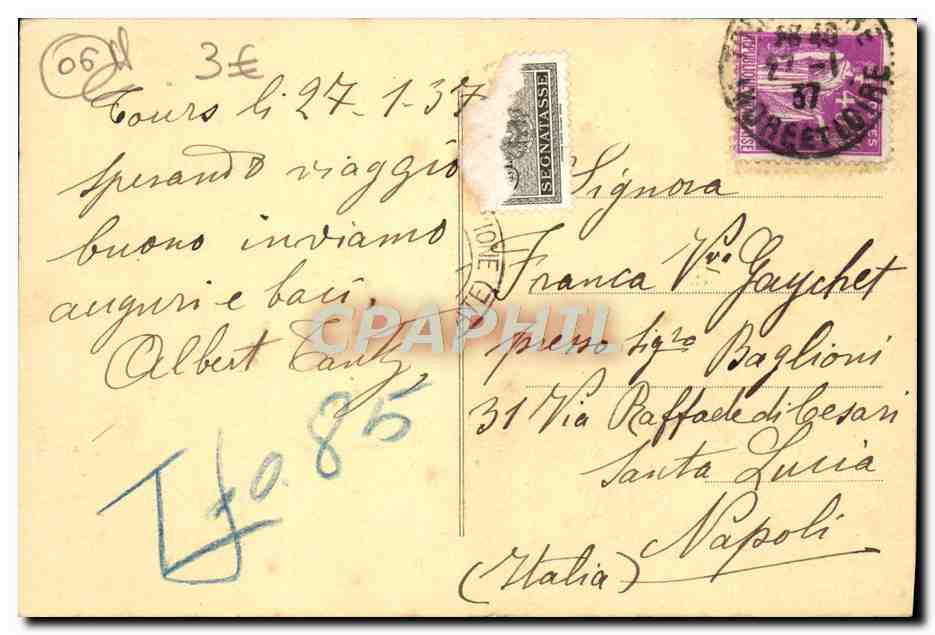 06
3€
Tours li 27-1-37
sperando viaggio
buono inviamo
auguri e baci,
Albert
SEGNATASSE
IONE
40
27 -1
37
INDRE ET LOIRE
Signora
Franca Vve Gaychet
presso Sigra Baglioni
31 Via Raffaele di Cesari
Santa Lucia
Napoli
(Italia)
T
0.85
CPAPHIL